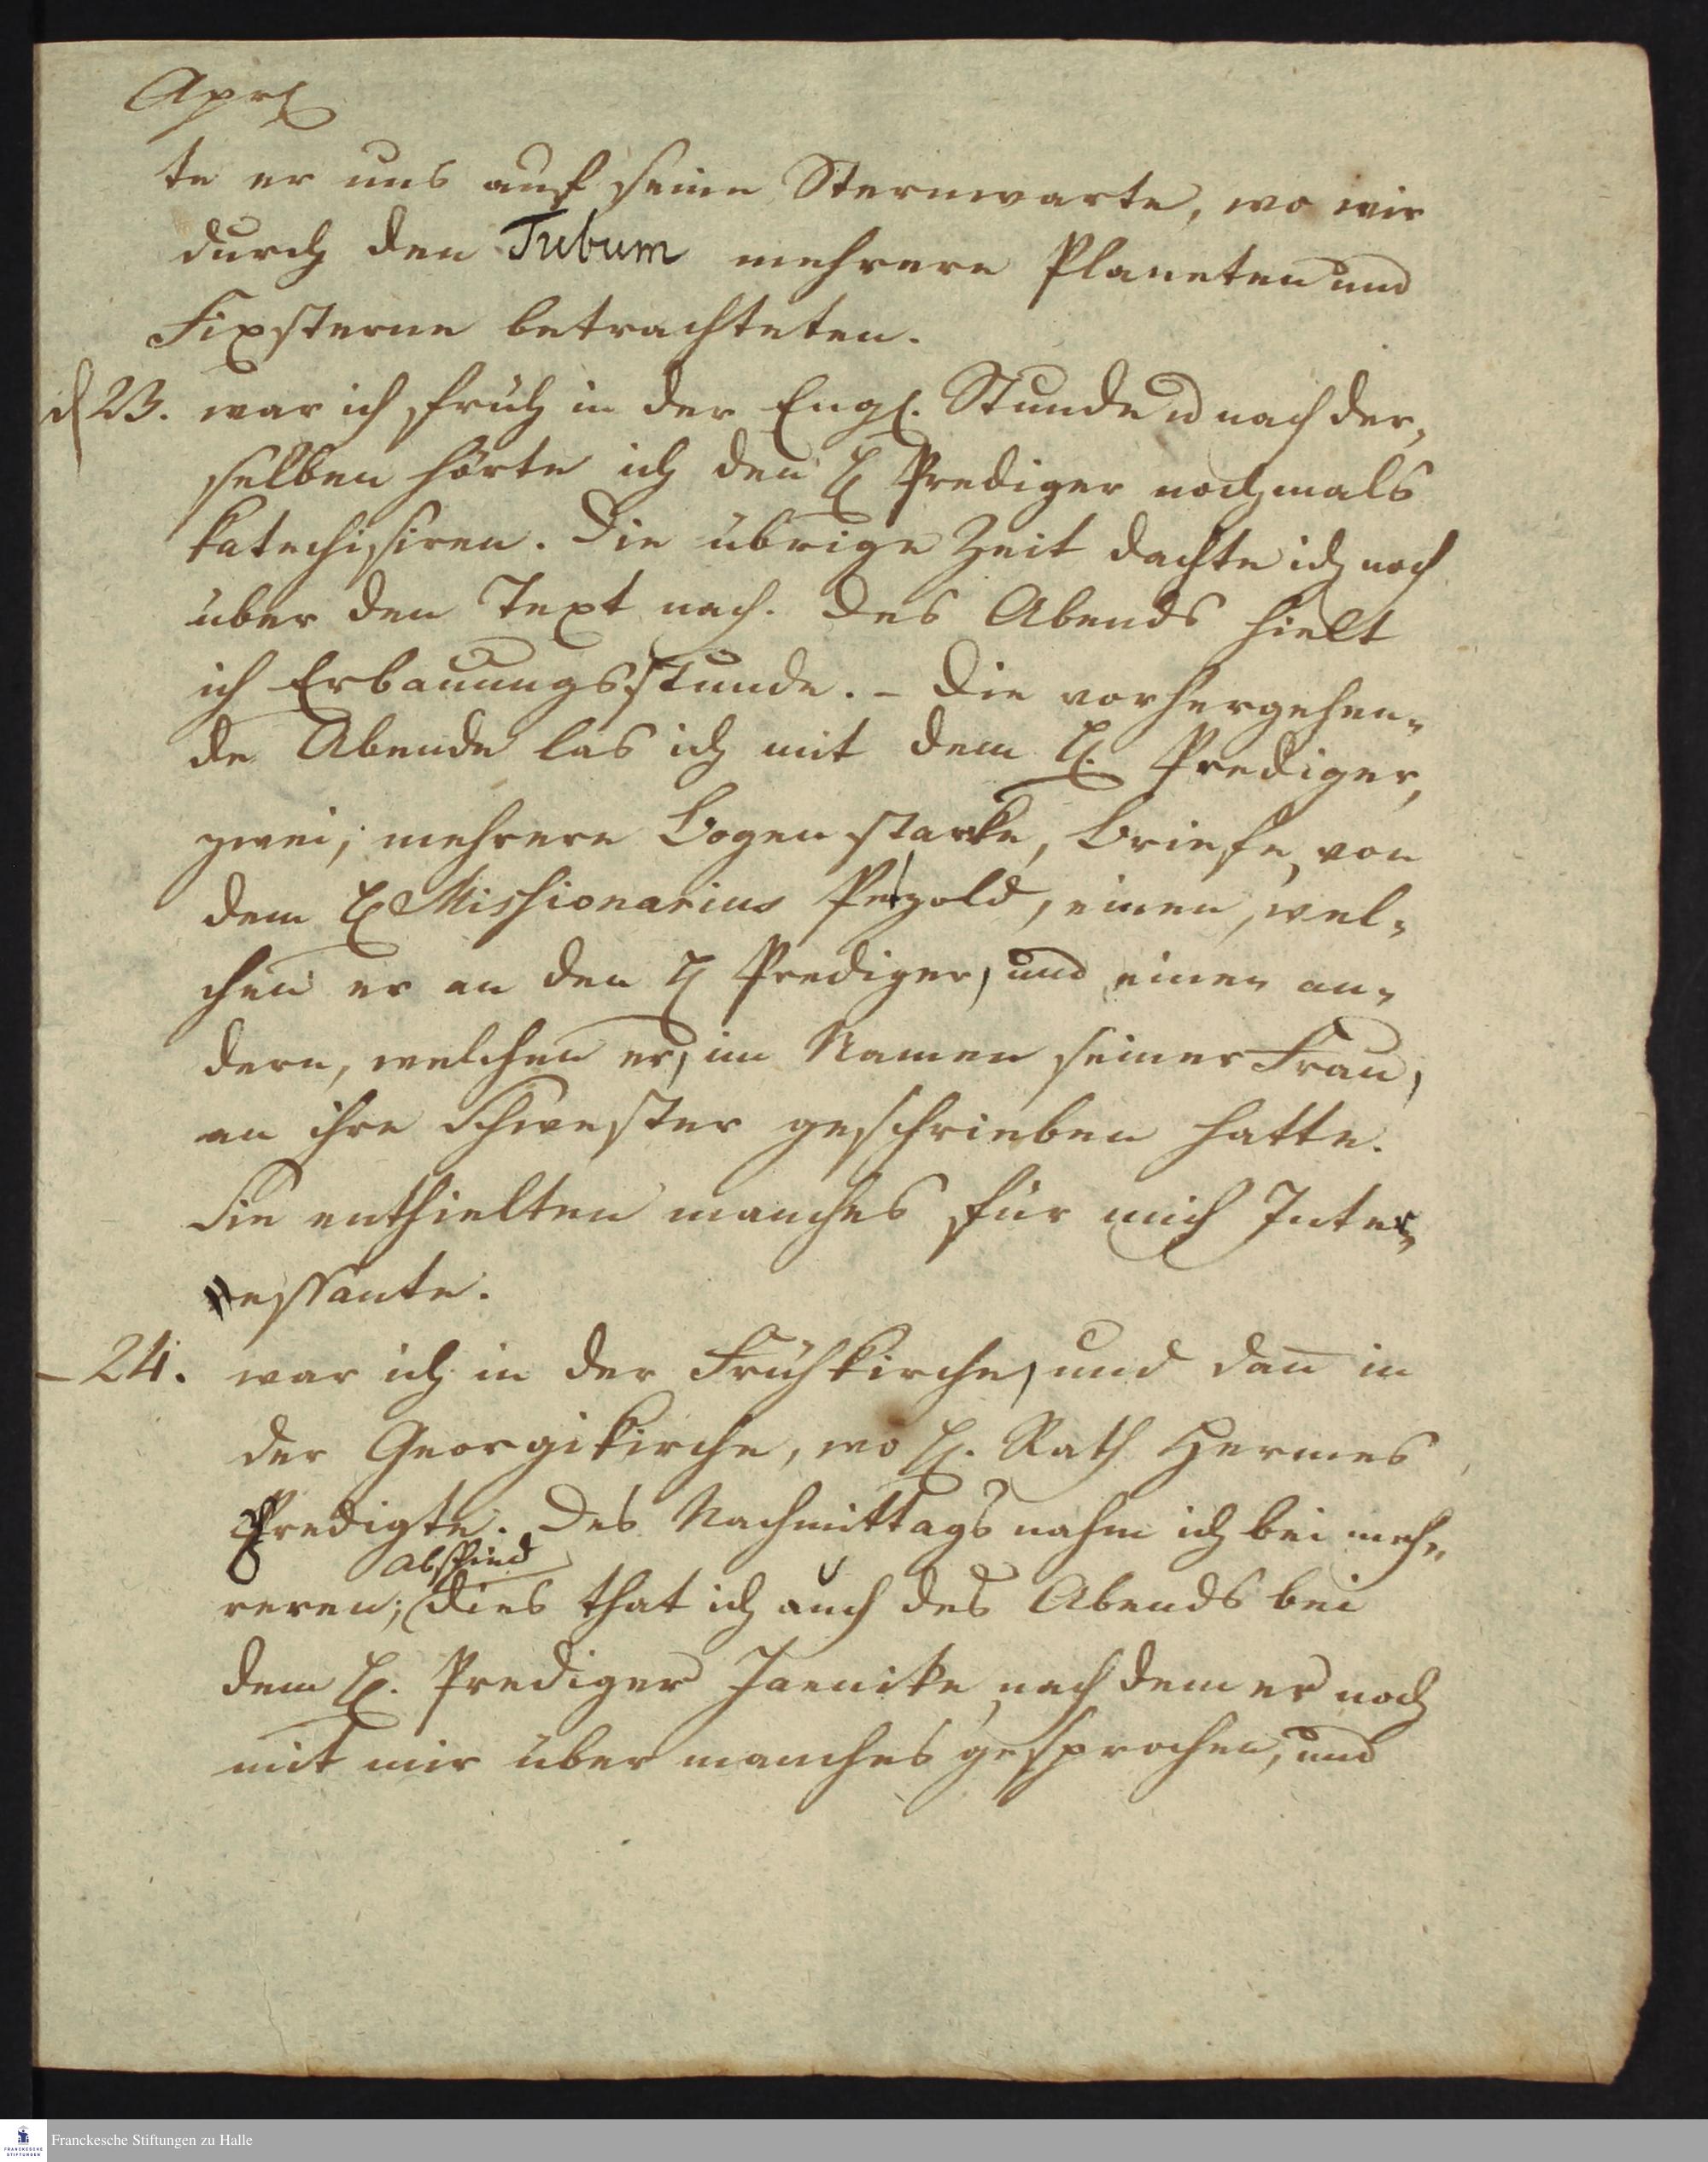 Aprl
te er uns auf seine Sternwarte, wo wir
durch den Tubum mehrere Planeten und
Fixsterne betrachteten.
d 23. war ich früh in der Engl. Stunde u nach der-
selben hörte ich den H Prediger nochmals
katechisiren. Die übrige Zeit dachte ich noch
über den Text nach. Des Abends hielt
ich Erbauungsstunde. – Die vorhergehen-
de Abende las ich mit dem H. Prediger,
zwei, mehrere Bogen starke, Briefe, von
dem H Missionarius Pezold, einen, wel-
chen er an den H Prediger, und einen an-
dern, welchen er, im Namen seiner Frau,
an ihre Schwester geschrieben hatte.
Sie enthielten manches für mich Inter-
essante.
– 24. war ich in der Frühkirche, und dan̄ in
der Georgikirche, wo H. Rath Hermes
Predigte. Des Nachmittags nahm ich bei meh-
abschied
reren; dies that ich auch des Abends bei
dem H. Prediger Jaenike, nach dem er noch
mit mir über manches gesprochen, und
Franckesche Stiftungen zu Halle